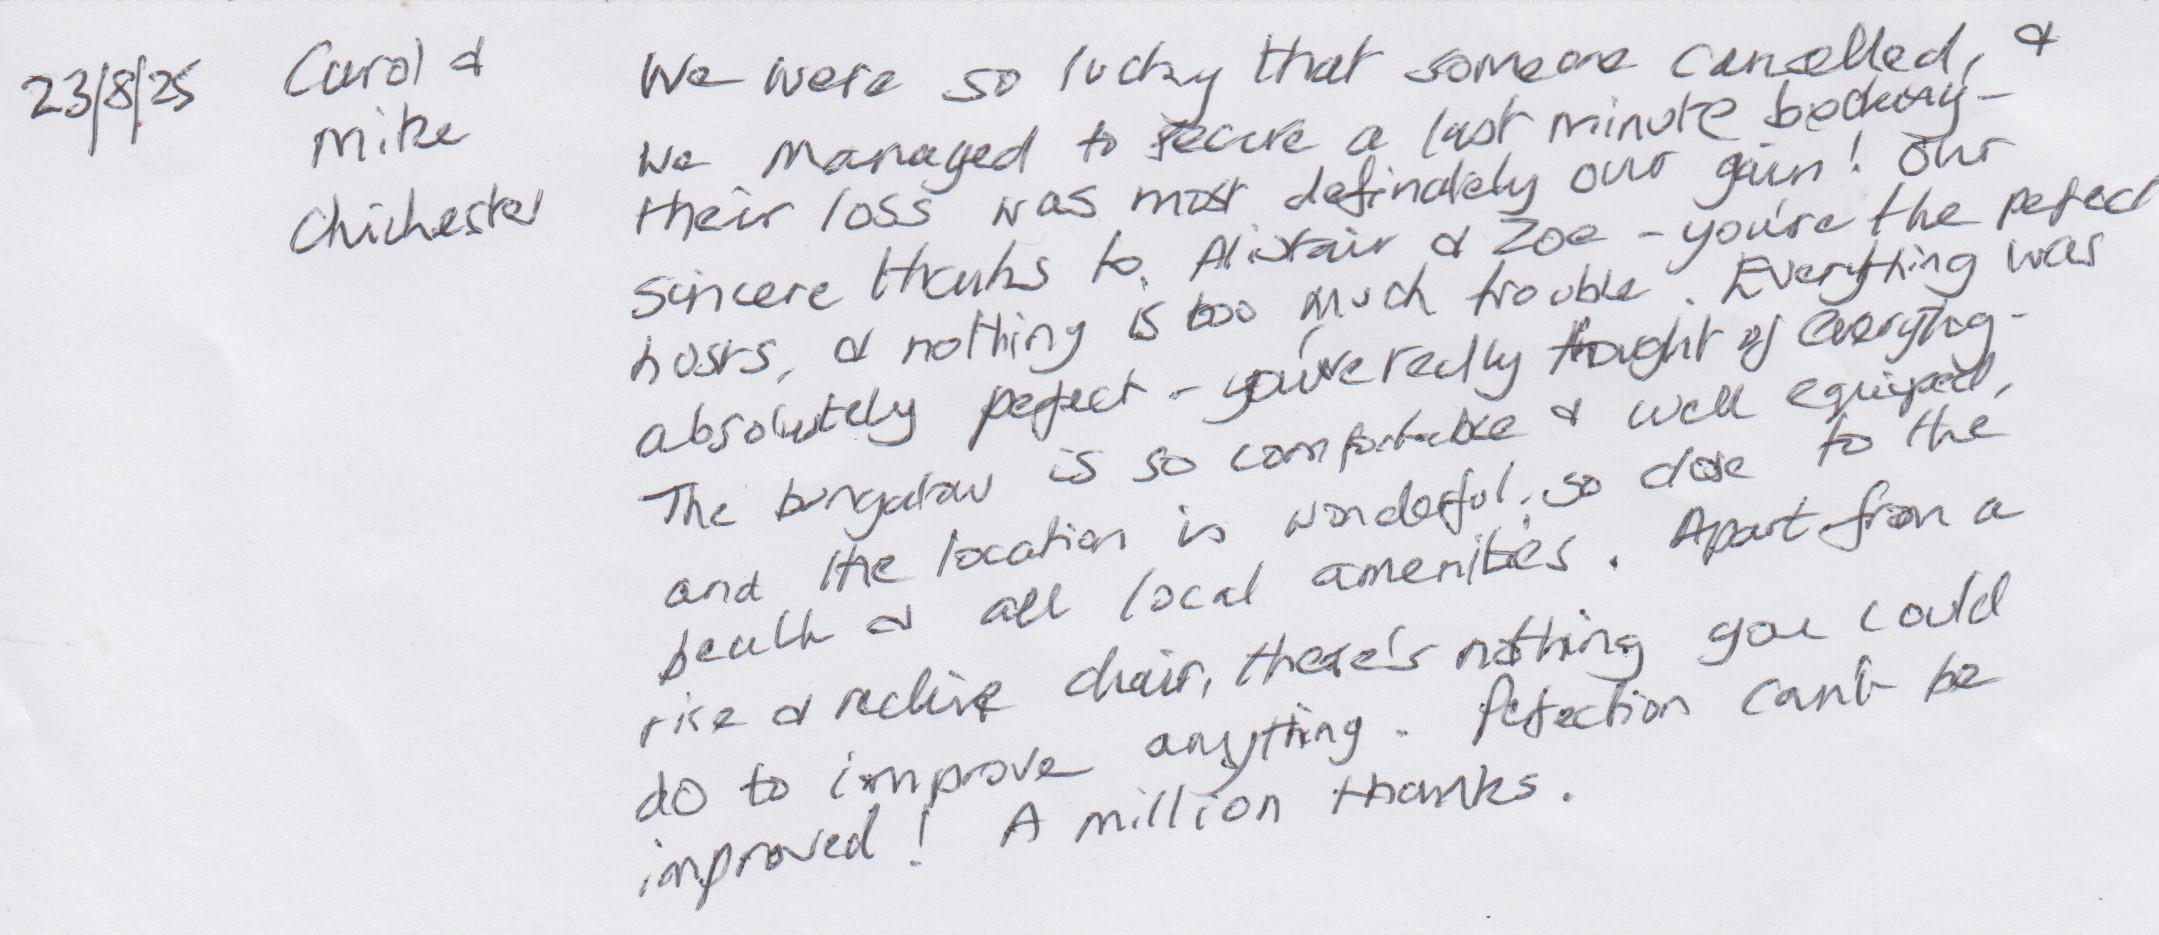 23/8/25 Carol & We were so lucky that someone cancelled, &
Mike we managed to secure a last minute booking –
Chichester their loss was most definately our gain! Our
sincere thanks to Alistair & Zoe – you're the pefect
hosts, & nothing is too much trouble. Everything was
absolutely pefect – you've really thought of everything –
The bungalow is so comfortable & well equiped,
and the location is wonderful, so close to the
beach & all local amenities. Apart from a
rise & recline chair, there's nothing you could
do to improve anything. Pefection can't be
improved! A million thanks.